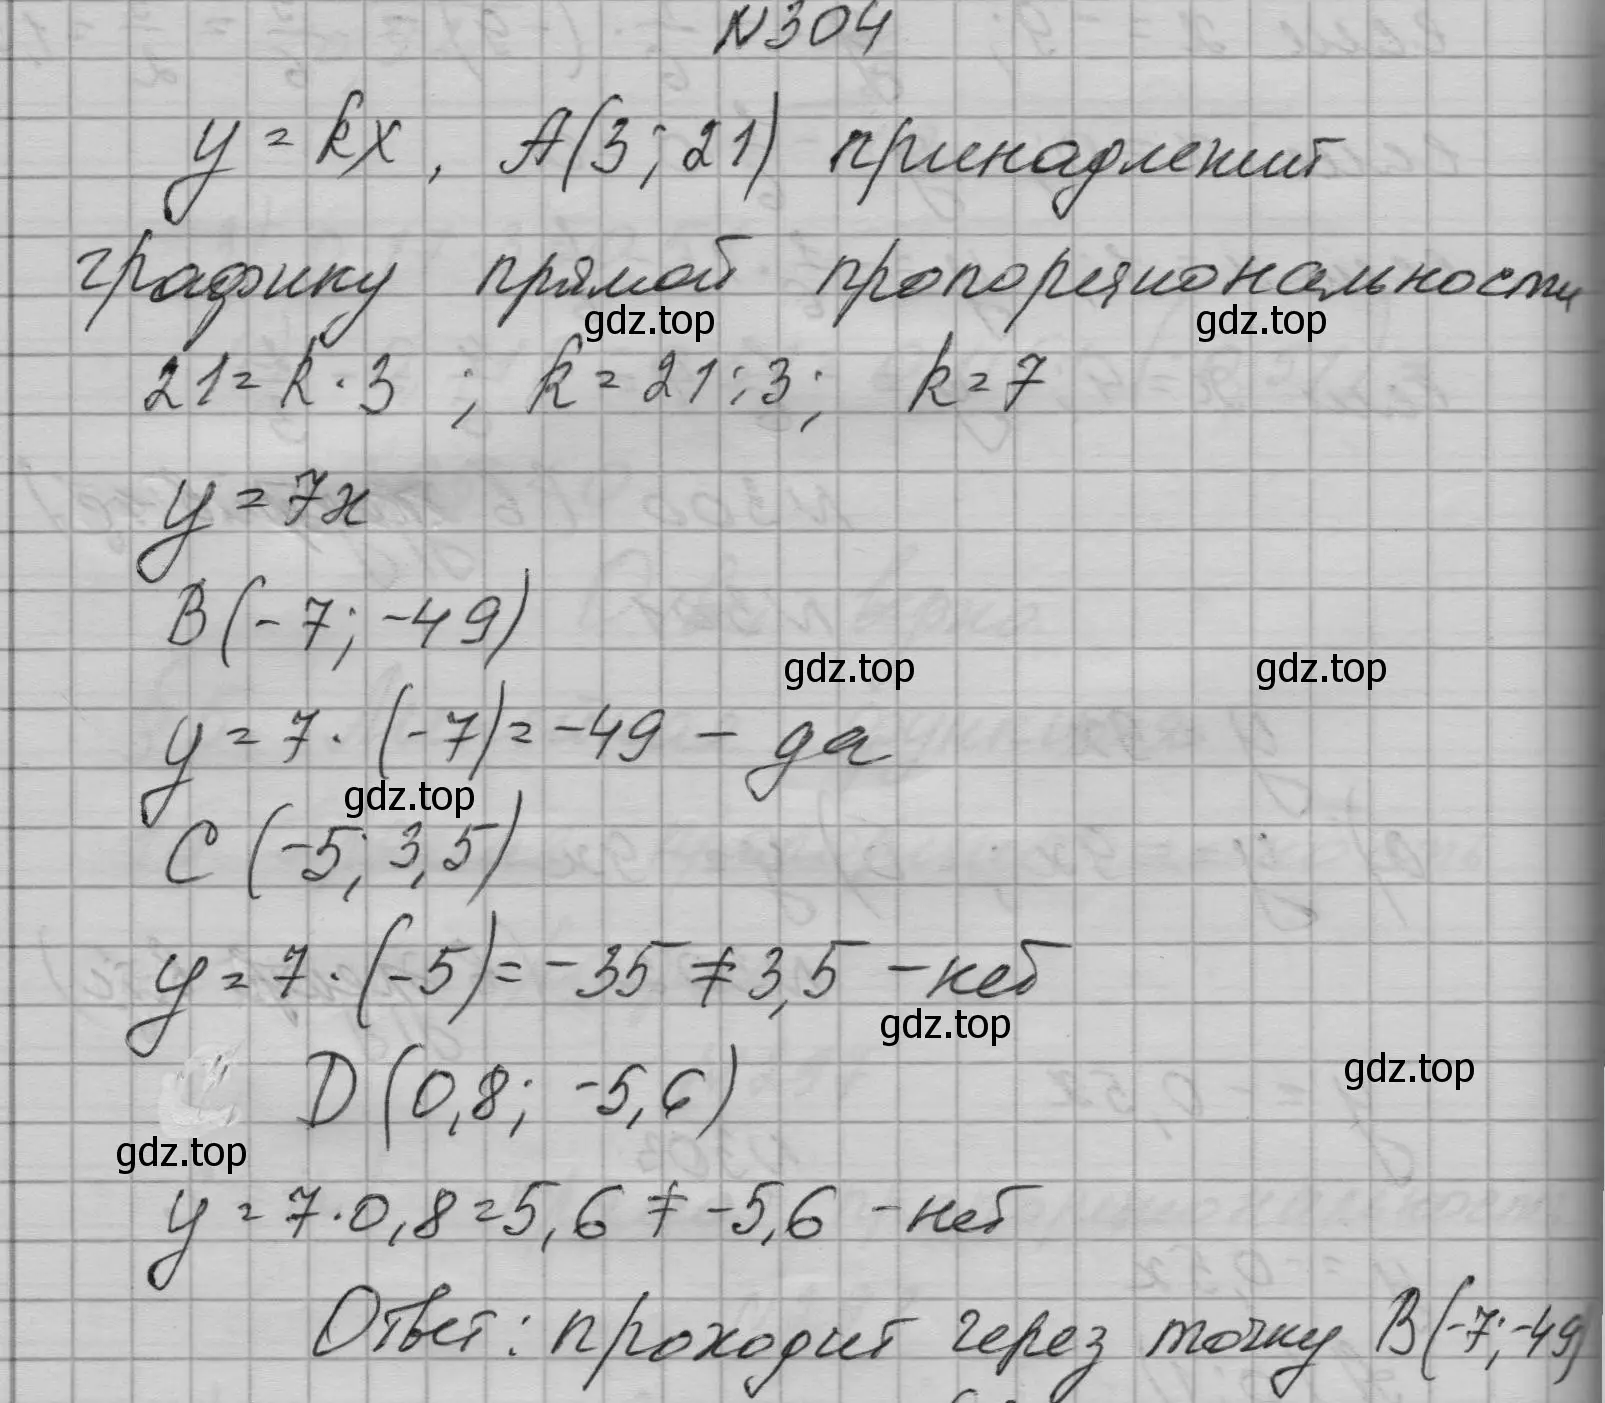 N304
y = kx, A(3; 21) принадлежит
графику прямой пропорциональности
gdz.top gdz.top
21 = k · 3 ; k = 21 : 3; k = 7
y = 7x
B(-7; -49)
gdz.top gdz.top
y = 7 · (-7) = -49 - да
gdz.top
C (-5; 3,5)
y = 7 · (-5) = -35 ≠ 3,5 - нет
gdz.top
gdz.top
D (0,8; -5,6)
gdz.top
y = 7 · 0,8 = 5,6 ≠ -5,6 - нет
Ответ: проходит через точку B(-7; -49)